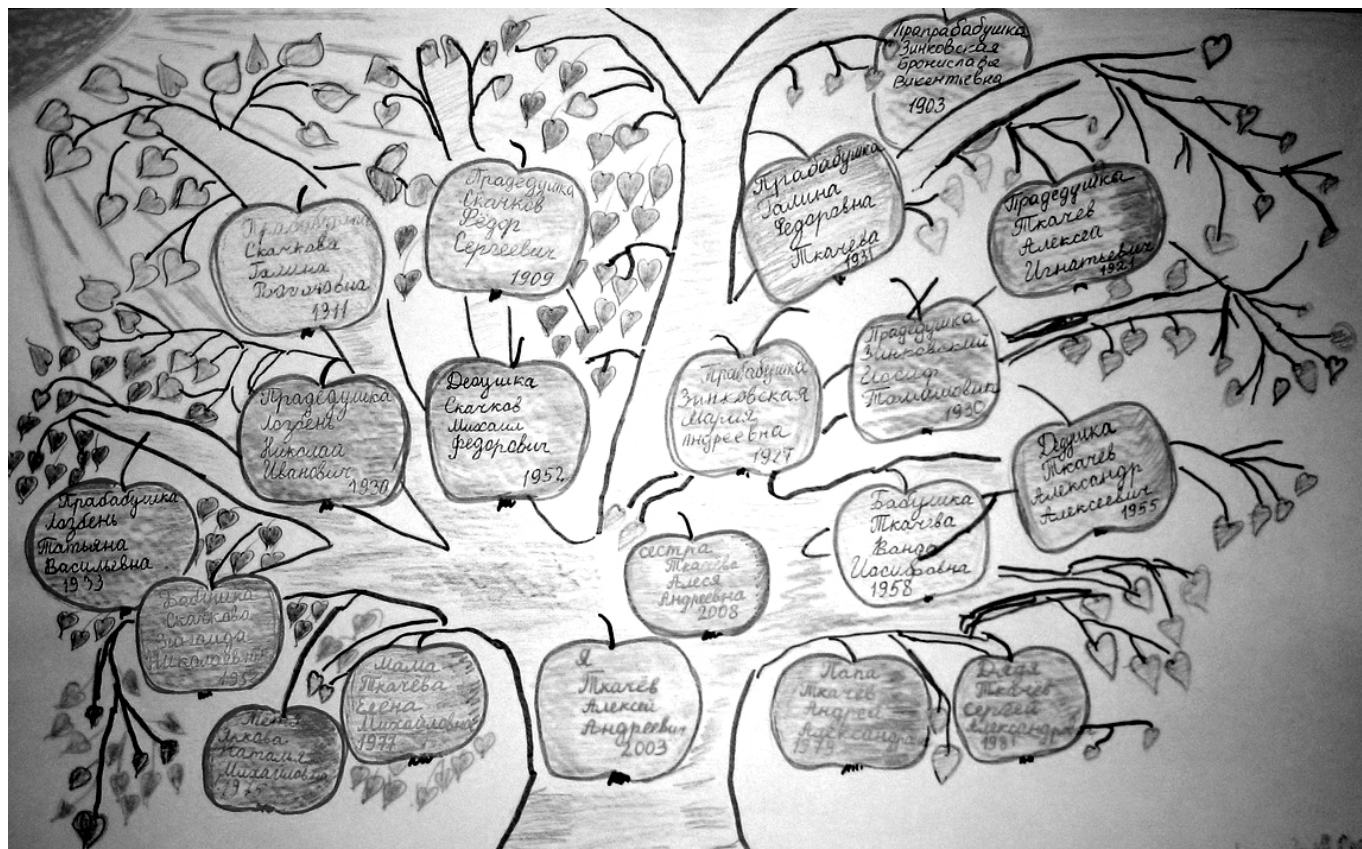 Прапрабабушка
Зинковская
Бронислава
Викентьевна
1903
Прадедушка
Скачков
Фёдор
Сергеевич
1909
Прабабушка
Галина
Федоровна
Ткачева
1931
Прадедушка
Ткачев
Алексей
Игнатьевич
1921
Прабабушка
Скачкова
Галина
1911
Прадедушка
Лозбень
Николай
Иванович
1930
Дедушка
Скачков
Михаил
Федорович
1952
Прабабушка
Зинковская
Мария
Андреевна
1927
Прадедушка
Зинковский
Иосиф
1930
Дедушка
Ткачев
Александр
Алексеевич
1955
Прабабушка
Лозбень
Татьяна
Васильевна
1933
Бабушка
Ткачева
Ванда
Иосифовна
1958
сестра
Ткачева
Алеся
Андреевна
2008
Бабушка
Скачкова
Зинаида
Николаевна
Мама
Ткачёва
Елена
Михайловна
1977
Я
Ткачёв
Алексей
Андреевич
2003
Папа
Ткачев
Андрей
1979
Дядя
Ткачев
Сергей
1981
Тётя
Наталья
Михайловна